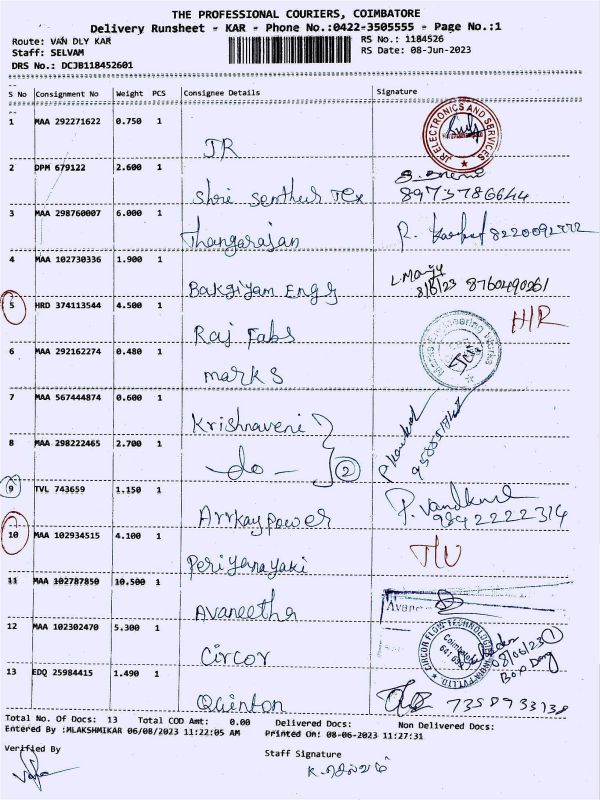 THE PROFESSIONAL COURIERS, COIMBATORE
Delivery Runsheet - KAR - Phone No.:0422-3505555 - Page No.:1
Route: VAN DLY KAR RS No.: 1184526
Staff: SELVAM RS Date: 08-Jun-2023
DRS No.: DCJB118452601
S No Consignment No Weight PCS Consignee Details Signature
1 MAA 292271622 0.750 1
JR
JR ELECTRONICS AND SERVICES
2 DPM 679122 2.600 1
Shri Senthur Tex 8973786644
3 MAA 298760007 6.000 1
Thangarajan
4 MAA 102730336 1.900 1
Bakgiyam Engg 8/6/23 8760490261
5 HRD 374113544 4.500 1
Raj Fabs H/R
6 MAA 292162274 0.480 1
marks
7 MAA 567444874 0.600 1
Krishnaveni
8 MAA 298222465 2.700 1
-do- 2
9 TVL 743659 1.150 1
Arrkay power 9842222314
10 MAA 102934515 4.100 1
Periyanayaki
11 MAA 102787850 10.500 1
Avaneetha
12 MAA 102302470 5.300 1
Circor 08/06/23 1
13 EDQ 25984415 1.490 1
Quinton 7358933138
Total No. Of Docs: 13 Total COD Amt: 0.00 Delivered Docs: Non Delivered Docs:
Entered By :MLAKSHMIKAR 06/08/2023 11:22:05 AM Printed On: 08-06-2023 11:27:31
Verified By Staff Signature